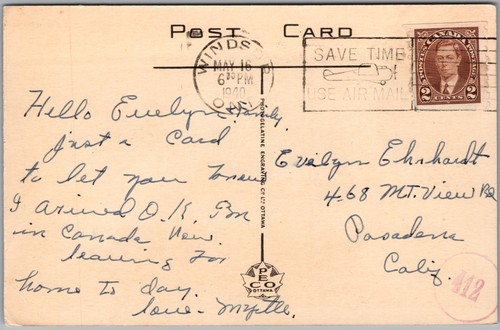 POST CARD
WINDSOR
MAY 16
6 30 PM
1940
ONT.
SAVE TIME
USE AIR MAIL
POSTES CANADA POSTAGE
2 CENTS 2
Hello Evelyn & family,
just a Card
to let you know
I arived O.K. Am
in Canada now.
leaving for
home to day.
love - Myrtle.
PHOTOGELATINE ENGRAVING CO. LTD. OTTAWA
PECO
OTTAWA
Evelyn Ehrhardt
468 MT. View
Pasadena
Calif.
412